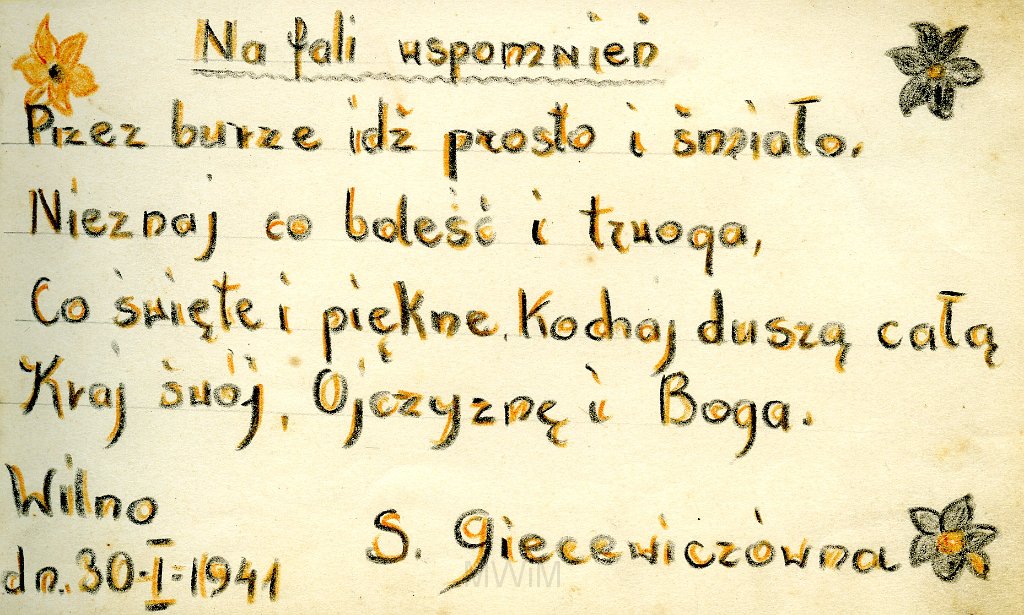 Na fali wspomnień
Przez burze idź prosto i śmiało,
Nieznaj co boleść i trwoga,
Co święte i piękne. Kochaj duszą całą
Kraj swój, Ojczyznę i Boga.
Wilno
dn. 30-I-1941
S. Giecewiczówna
MWiM